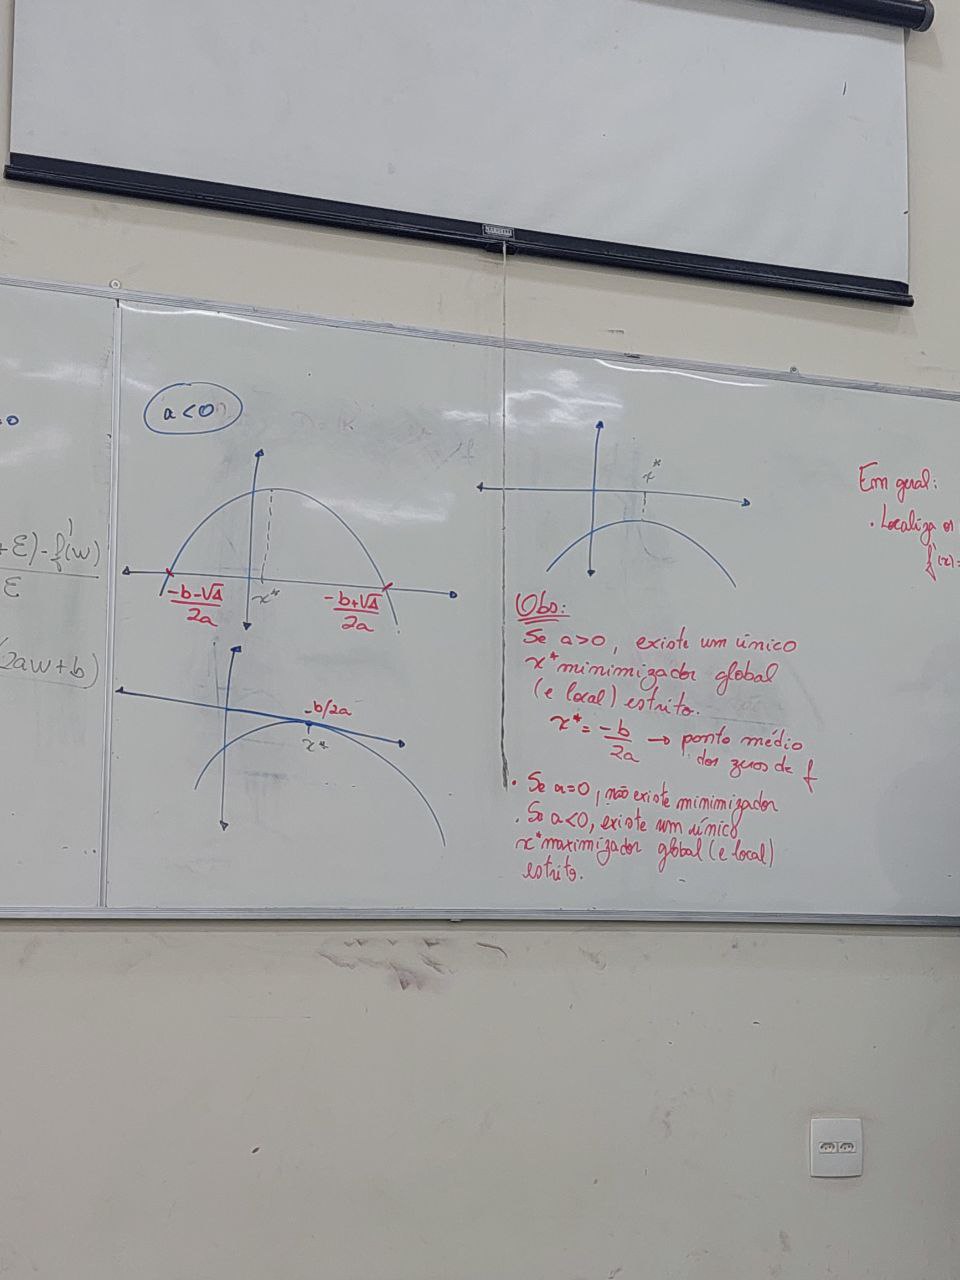 a<0
x*
-b-√Δ
2a
x*
-b+√Δ
2a
-b/2a
x*
+ε)-f'(w)
ε
2aw+b)
Obs:
Se a>0, existe um único
x* minimizador global
(e local) estrito.
x* = -b/2a → ponto médio
dos zeros de f
. Se a=0, não existe minimizador
. Se a<0, existe um único
x* maximizador global (e local)
estrito.
Em geral:
. Localiza os
f'(x)=